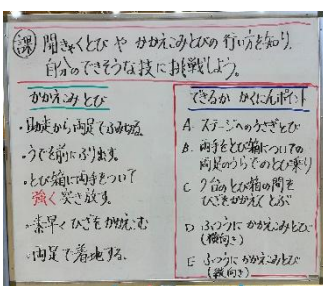 課 開きゃくとび や かかえこみとびの 行い方を知り、
自分のできそうな技に挑戦しよう。
かかえこみとび
・助走から両足でふみ切る
・うでを前にふり出す。
・とび箱に両手をついて
強く突き放す。
・素早くひざをかかえこむ
・両足で着地する。
できるか かくにんポイント
A ステージへのうさぎとび
B 両手をとび箱についての
両足のうらでのとび乗り
C 2台のとび箱の間を
ひざをかかえてとぶ
D ふつうに かかえこみとび
(横向き)
E ふつうに かかえこみとび
(縦向き)